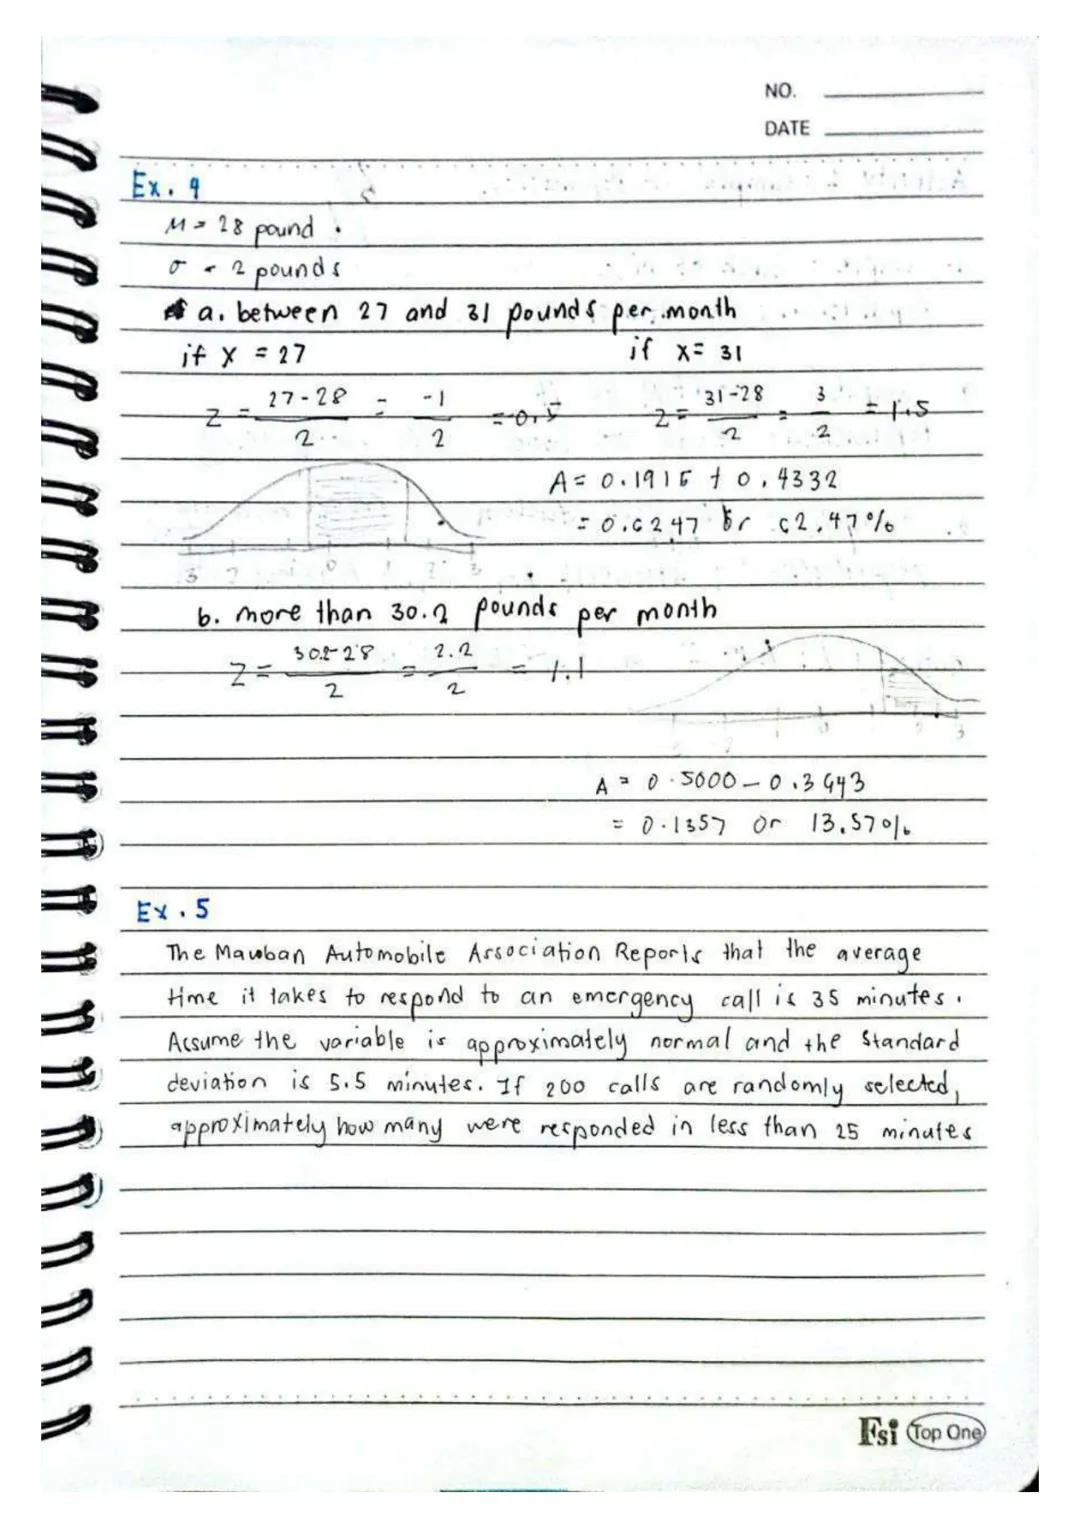 NO.
DATE
Ex. 4
M = 28 pound.
σ = 2 pounds
a. between 27 and 31 pounds per month
if X = 27 if X = 31
Z = 27-28 / 2 = -1 / 2 = 0.5 Z = 31-28 / 2 = 3 / 2 = 1.5
A = 0.1915 + 0.4332
= 0.6247 or 62.47%
3 2 0 1 2 3
b. more than 30.2 pounds per month
Z = 30.2-28 / 2 = 2.2 / 2 = 1.1
A = 0.5000 - 0.3643
= 0.1357 or 13.57%
Ex. 5
The Mauban Automobile Association Reports that the average
time it takes to respond to an emergency call is 35 minutes.
Assume the variable is approximately normal and the Standard
deviation is 5.5 minutes. If 200 calls are randomly selected,
approximately how many were responded in less than 25 minutes
Fsi Top One